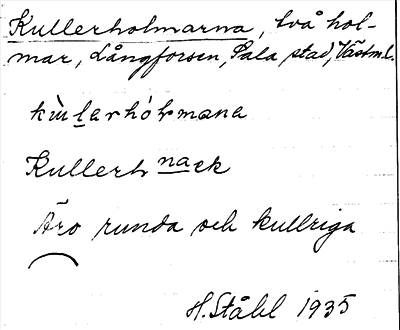 Kullerholmarna, två hol-
mar, Långforsen, Sala stad, Västml.
kùlerhólmana
Kullerh nack
Äro runda och kullriga
H. Ståhl 1935